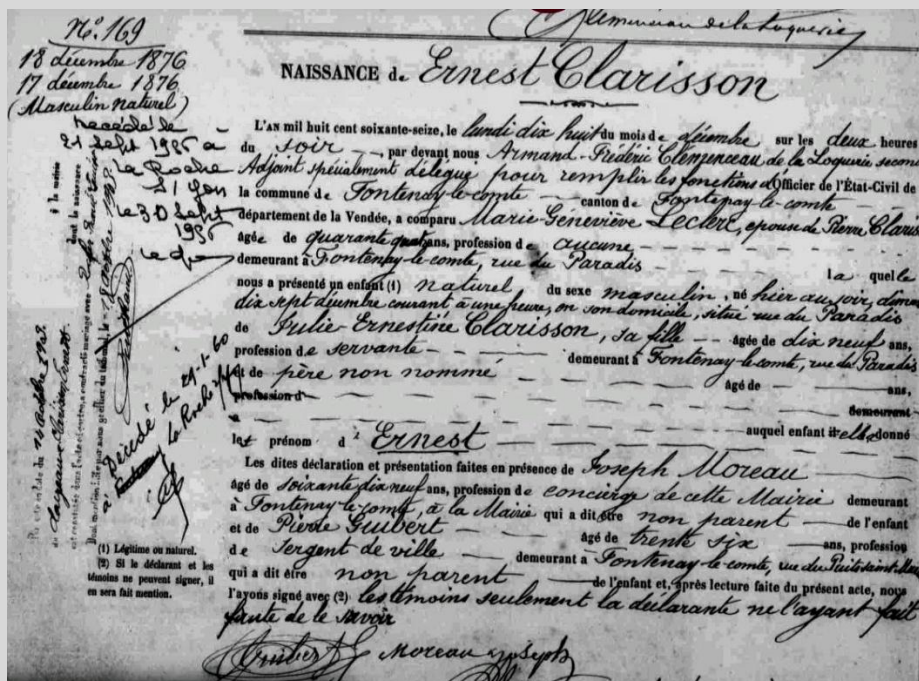 Clemenceau de la Loquerie
No. 169
18 décembre 1876
17 décembre 1876
(Masculin naturel)
21 Sept
La Roche
S/ Yon
le 30 Sept
à la mairie
Décédé le 29-1-60
à La Roche s/Yon
(1) Légitime ou naturel.
(2) Si le déclarant et les
témoins ne peuvent signer, il
en sera fait mention.
NAISSANCE de Ernest Clarisson
L'AN mil huit cent soixante-seize, le lundi dix huit du mois de décembre sur les deux heures
du soir par devant nous Armand-Frédéric Clemenceau de la Loquerie second
Adjoint spécialement délégué pour remplir les fonctions d'Officier de l'État-Civil de
la commune de Fontenay-le-comte canton de Fontenay-le-comte
département de la Vendée, a comparu Marie-Geneviève Leclerc, épouse de Pierre Claris
âgée de quarante quatre ans, profession de aucune
demeurant à Fontenay-le-comte, rue du Paradis laquelle
nous a présenté un enfant (1) naturel du sexe masculin, né hier au soir,
dix sept décembre courant à une heure, en son domicile, situé rue du Paradis
de Julie-Ernestine Clarisson, sa fille âgée de dix neuf ans,
profession de servante demeurant à Fontenay-le-comte, rue du Paradis
et de père non nommé âgé de ans,
profession d demeurant
à auquel enfant elle donné
le prénom d' Ernest
Les dites déclaration et présentation faites en présence de Joseph Moreau
âgé de soixante dix neuf ans, profession de concierge de cette Mairie demeurant
à Fontenay-le-comte, à la Mairie qui a dit être non parent de l'enfant
et de Pierre Guibert âgé de trente six ans, profession
de Sergent de ville demeurant à Fontenay-le-comte, rue du
qui a dit être non parent de l'enfant et, après lecture faite du présent acte, nous
l'ayons signé avec (2) les témoins seulement la déclarante ne l'ayant fait
faute de le savoir
Guibert Moreau Joseph